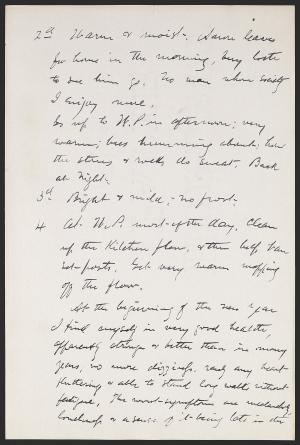 2d Warm & moist. Aaron leaves
for home in the morning, very loth
to see him go. No man whose society
I enjoy more.
Go up to W.P. in afternoon; very
warm; bees humming about; how
the stones & rocks do sweat. Back
at night.
3d Bright & mild; no frost.
4 At W.P. most of the day. Clean
up the kitchen floor, & then
posts. Get very warm mopping
off the floor.
At the beginning of the new year
I find myself in very good health,
apparently stronger & better than in many
years, no more dizziness, rarely any heart
fluttering & able to stand long walks without
fatigue. The worst symptoms are melancholy
loneliness & a sense of its being late in the